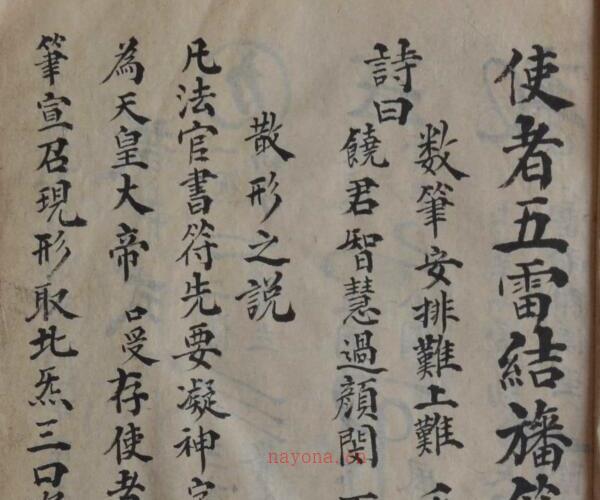 使者五雷結旛
詩曰
數筆安排難上難
饒君智慧過顔閔
散形之説
凡法官書符先要凝神
為天皇大帝 口受存使者
筆宣召現形取北炁三口
nayona.cn